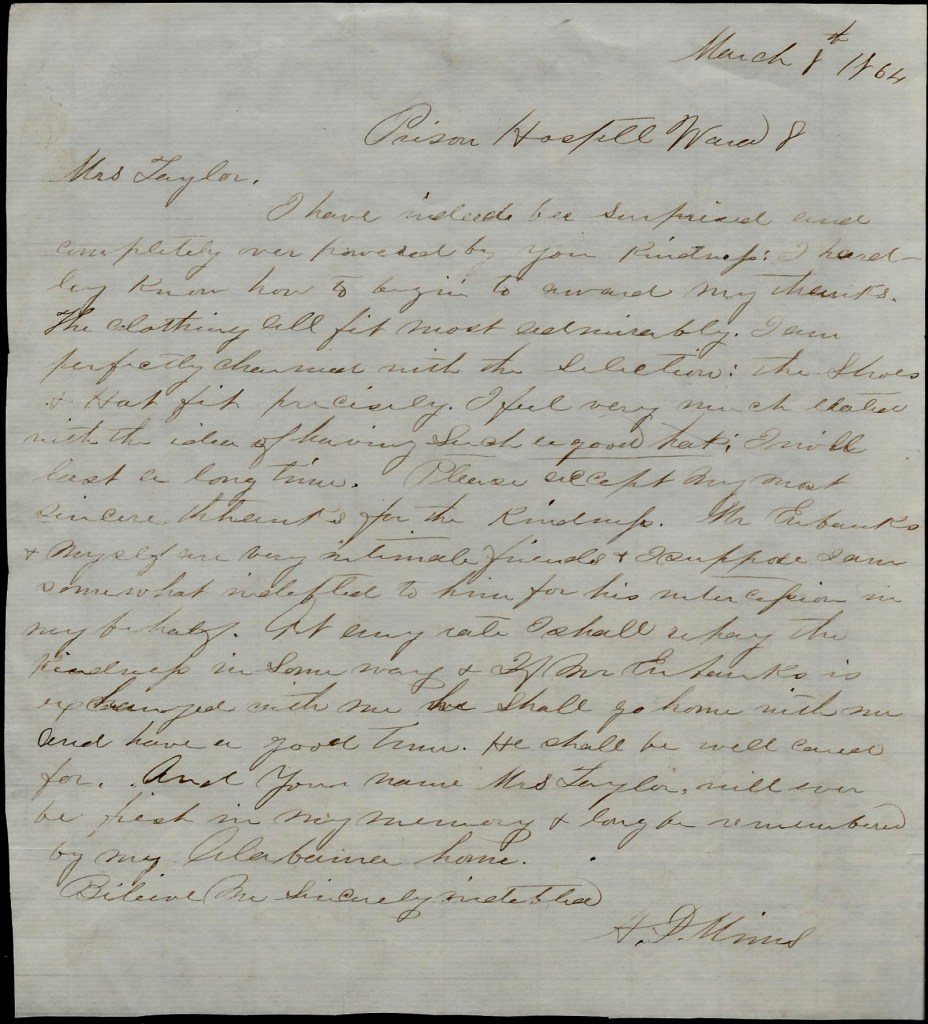 March 8th 1864
Prison Hospttl Ward 8
Mrs Taylor.
I have indeede bee surprised and
completely over powered by your kindness: I hard-
ley know how to begin to award my thanks.
The clothing all fit most admirably. I am
perfectly charmed with the selection: the Shoes
& Hat fit precisely. I feel very much elated
with the idea of having such a good hat; I will
last a long time. Please accept my most
sincere thanks for the kindness. Mr Eubanks
& myself are very intimate friends & I suppose I am
somewhat indebted to him for his intercession in
my behalf. At any rate I shall repay the
kindness in some way & If Mr Eubanks is
exchanged with me he shall go home with me
and have a good time. He shall be well cared
for. And Your name Mrs Taylor, will ever
be fresh in my memory & long be remembered
by my Alabama home.
Bileive Me Sincerely indebted
H. D. Mims